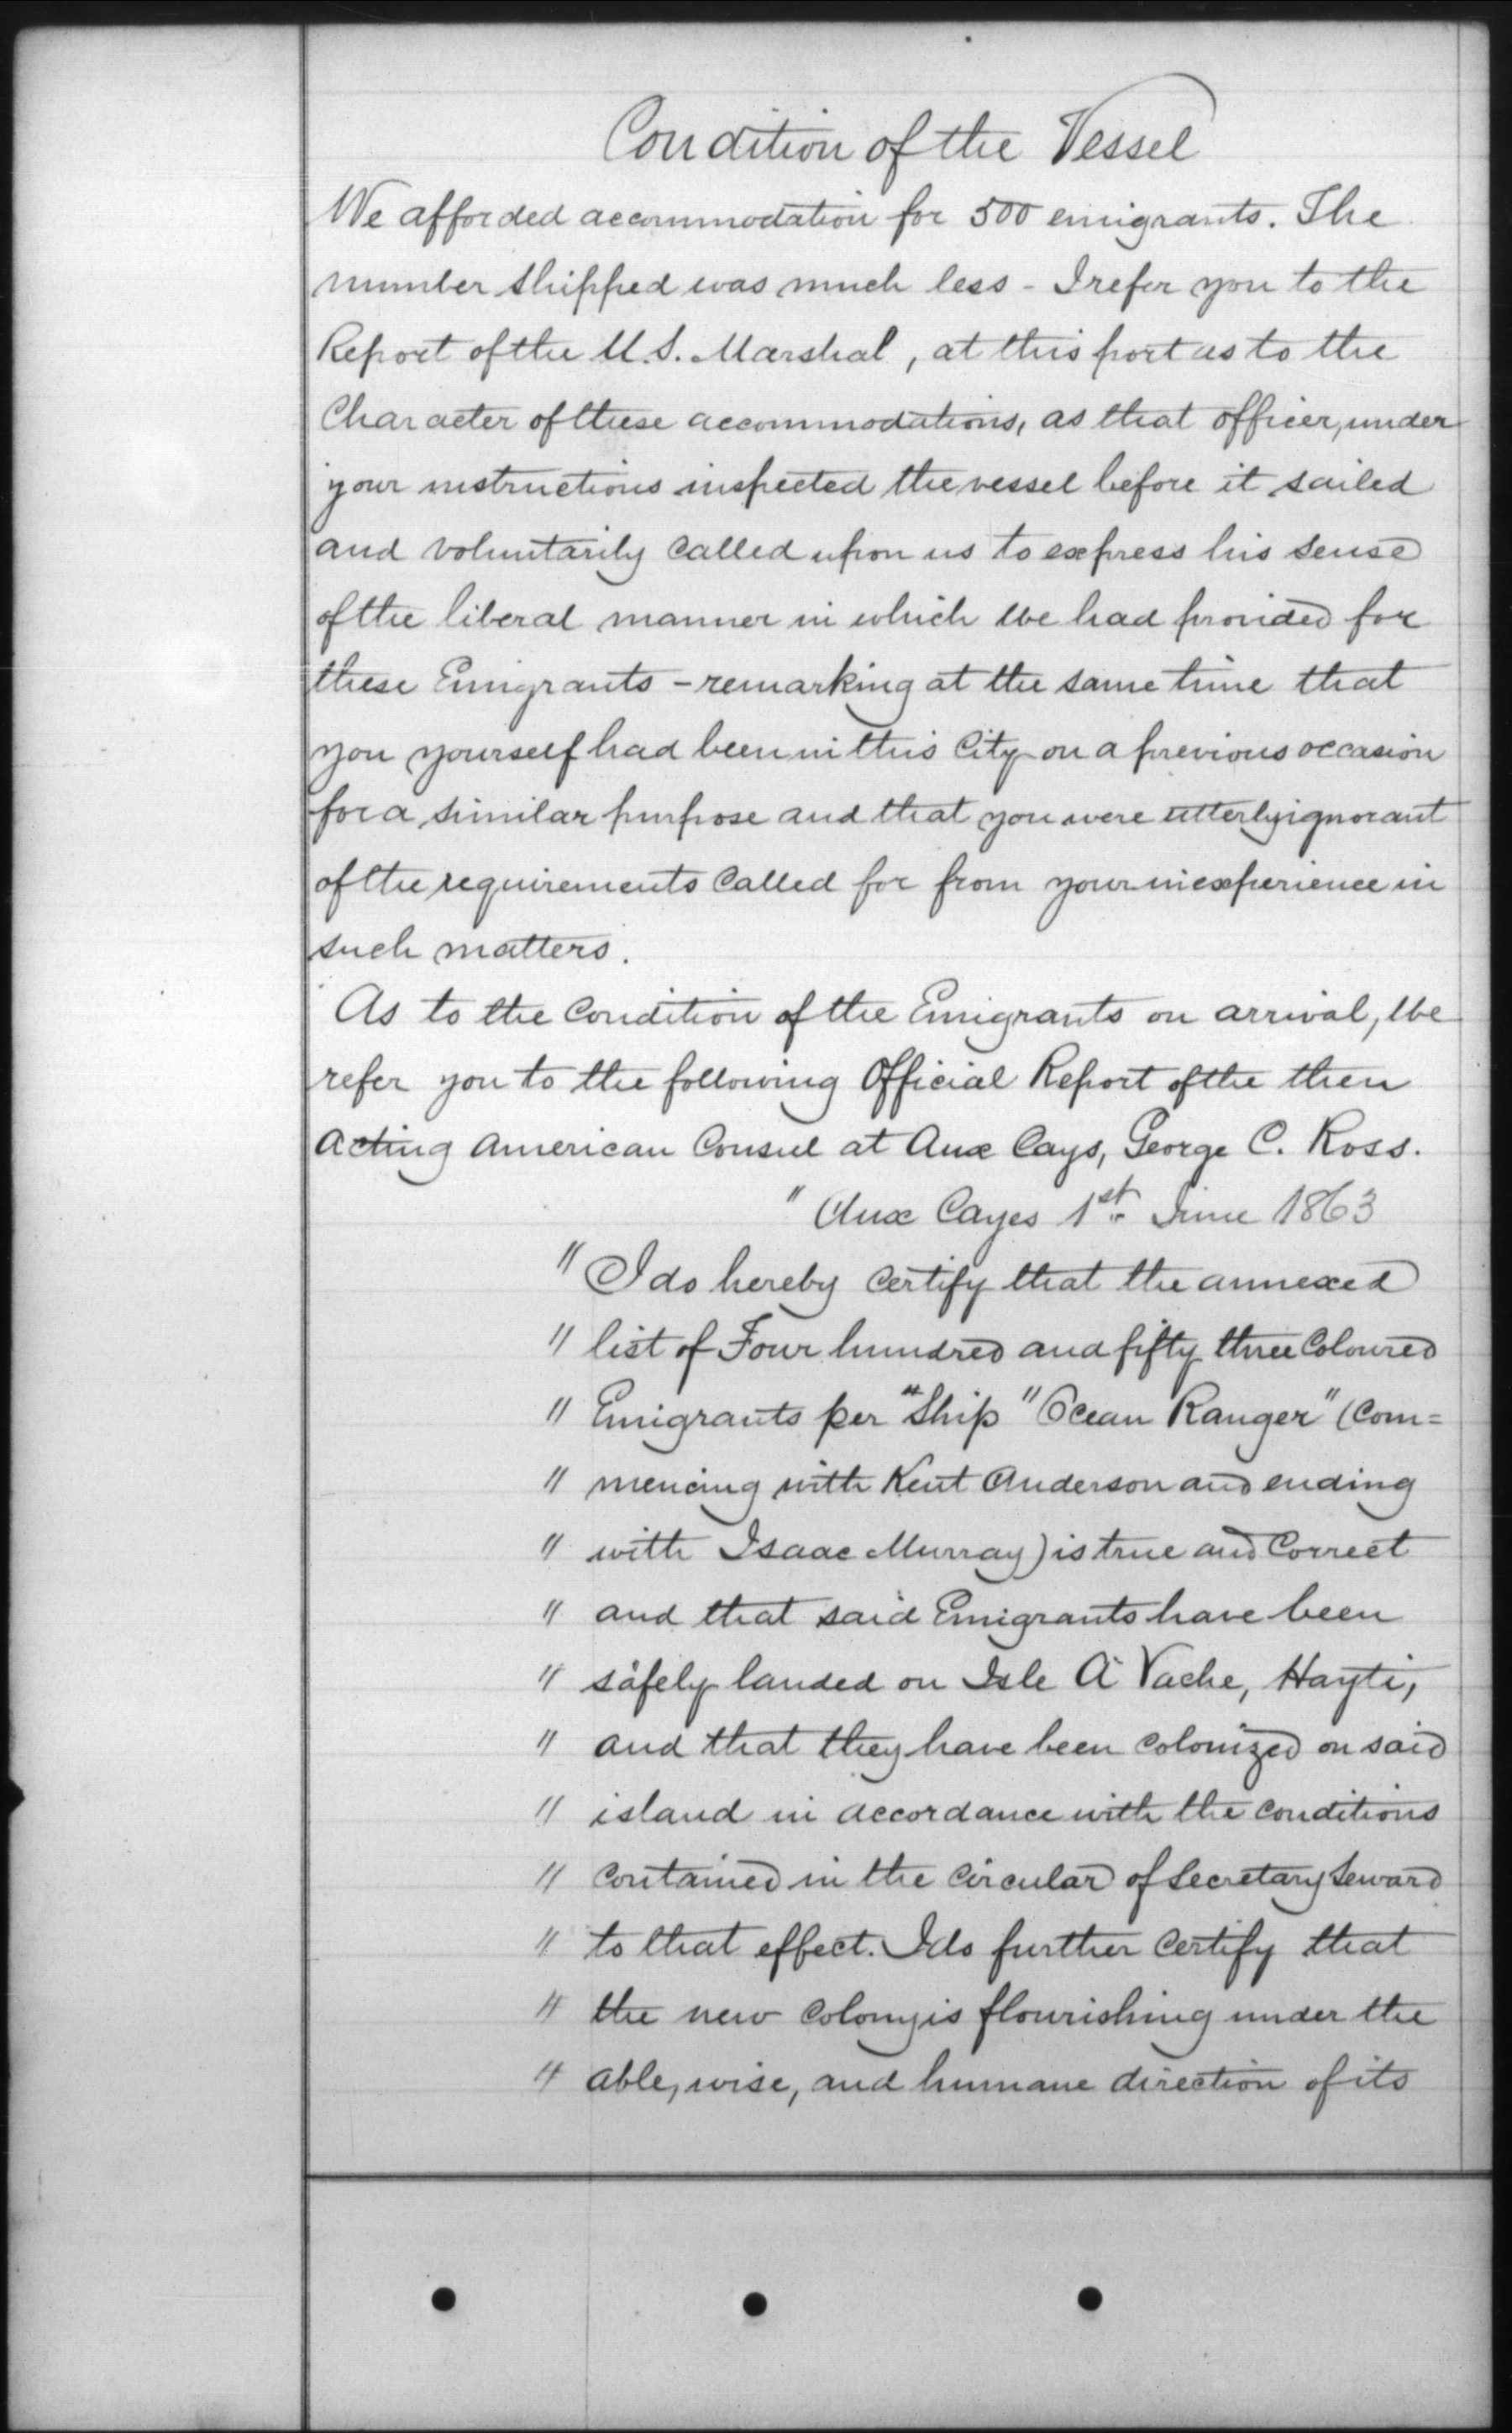 Condition of the Vessel
We afforded accommodation for 500 emigrants. The
number shipped was much less - I refer you to the
Report of the U.S. Marshal, at this port as to the
Character of these accommodations, as that officer, under
your instructions inspected the vessel before it sailed
and voluntarily called upon us to express his sense
of the liberal manner in which we had provided for
these Emigrants - remarking at the same time that
you yourself had been in this City on a previous occasion
for a similar purpose and that you were utterly ignorant
of the requirements called for from your inexperience in
such matters.
As to the Condition of the Emigrants on arrival, we
refer you to the following Official Report of the then
Acting American Consul at Aux Cays, George C. Ross.
" Aux Cayes 1st June 1863
" I do hereby certify that the annexed
" list of Four hundred and fifty three Coloured
" Emigrants per "Ship "Ocean Ranger" (Com=
" mencing with Kent Anderson and ending
" with Isaac Murray) is true and Correct
" and that said Emigrants have been
" safely landed on Isle A Vache, Hayti,
" and that they have been colonized on said
" island in accordance with the conditions
" contained in the circular of Secretary Seward
" to that effect. I do further certify that
" the new colony is flourishing under the
" able, wise, and humane direction of its